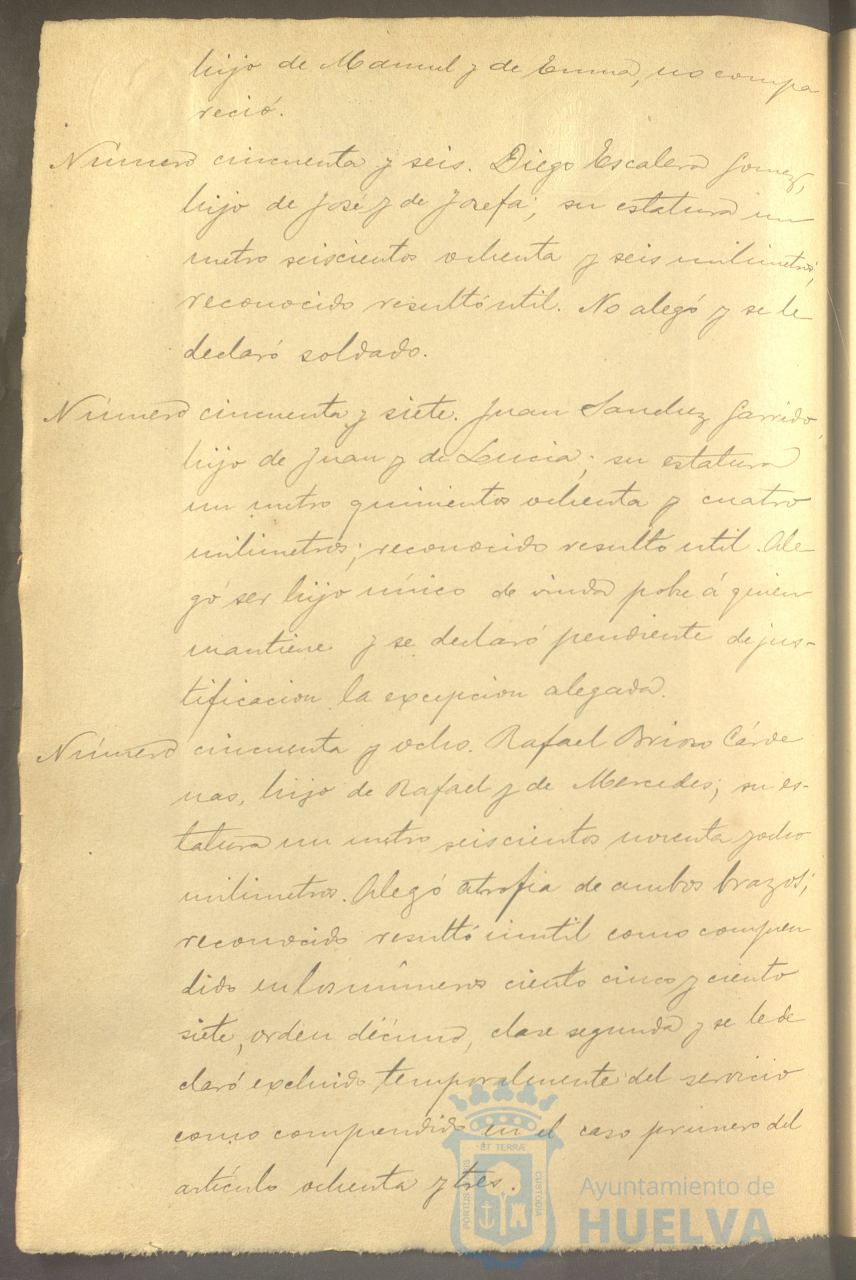 hijo de Manuel y de Emma, no compa
reció.
Número cincuenta y seis. Diego Escalera Gomez,
hijo de José y de Josefa; su estatura un
metro seiscientos ochenta y seis milimetros;
reconocido resultó util. No alegó y se le
declaró soldado.
Número cincuenta y siete. Juan Sanchez Garrido,
hijo de Juan y de Lucia; su estatura
un metro quinientos ochenta y cuatro
milimetros; reconocido resultó util. Ale-
gó ser hijo único de viuda pobre á quien
mantiene y se declaró pendiente de jus-
tificacion la excepcion alegada.
Número cincuenta y ocho. Rafael Brioso Cárde
nas, hijo de Rafael y de Mercedes; su es-
tatura un metro seiscientos noventa y ocho
milimetros. Alegó atrofia de ambos brazos;
reconocido resultó inutil como compren
dido en los números ciento cinco y ciento
siete, orden décimo, clase segunda y se le de
claró excluido temporalmente del servicio
como comprendido en el caso primero del
artículo ochenta y tres.
ET TERRÆ
PORTUS MARIS
CUSTODIA
Ayuntamiento de
HUELVA